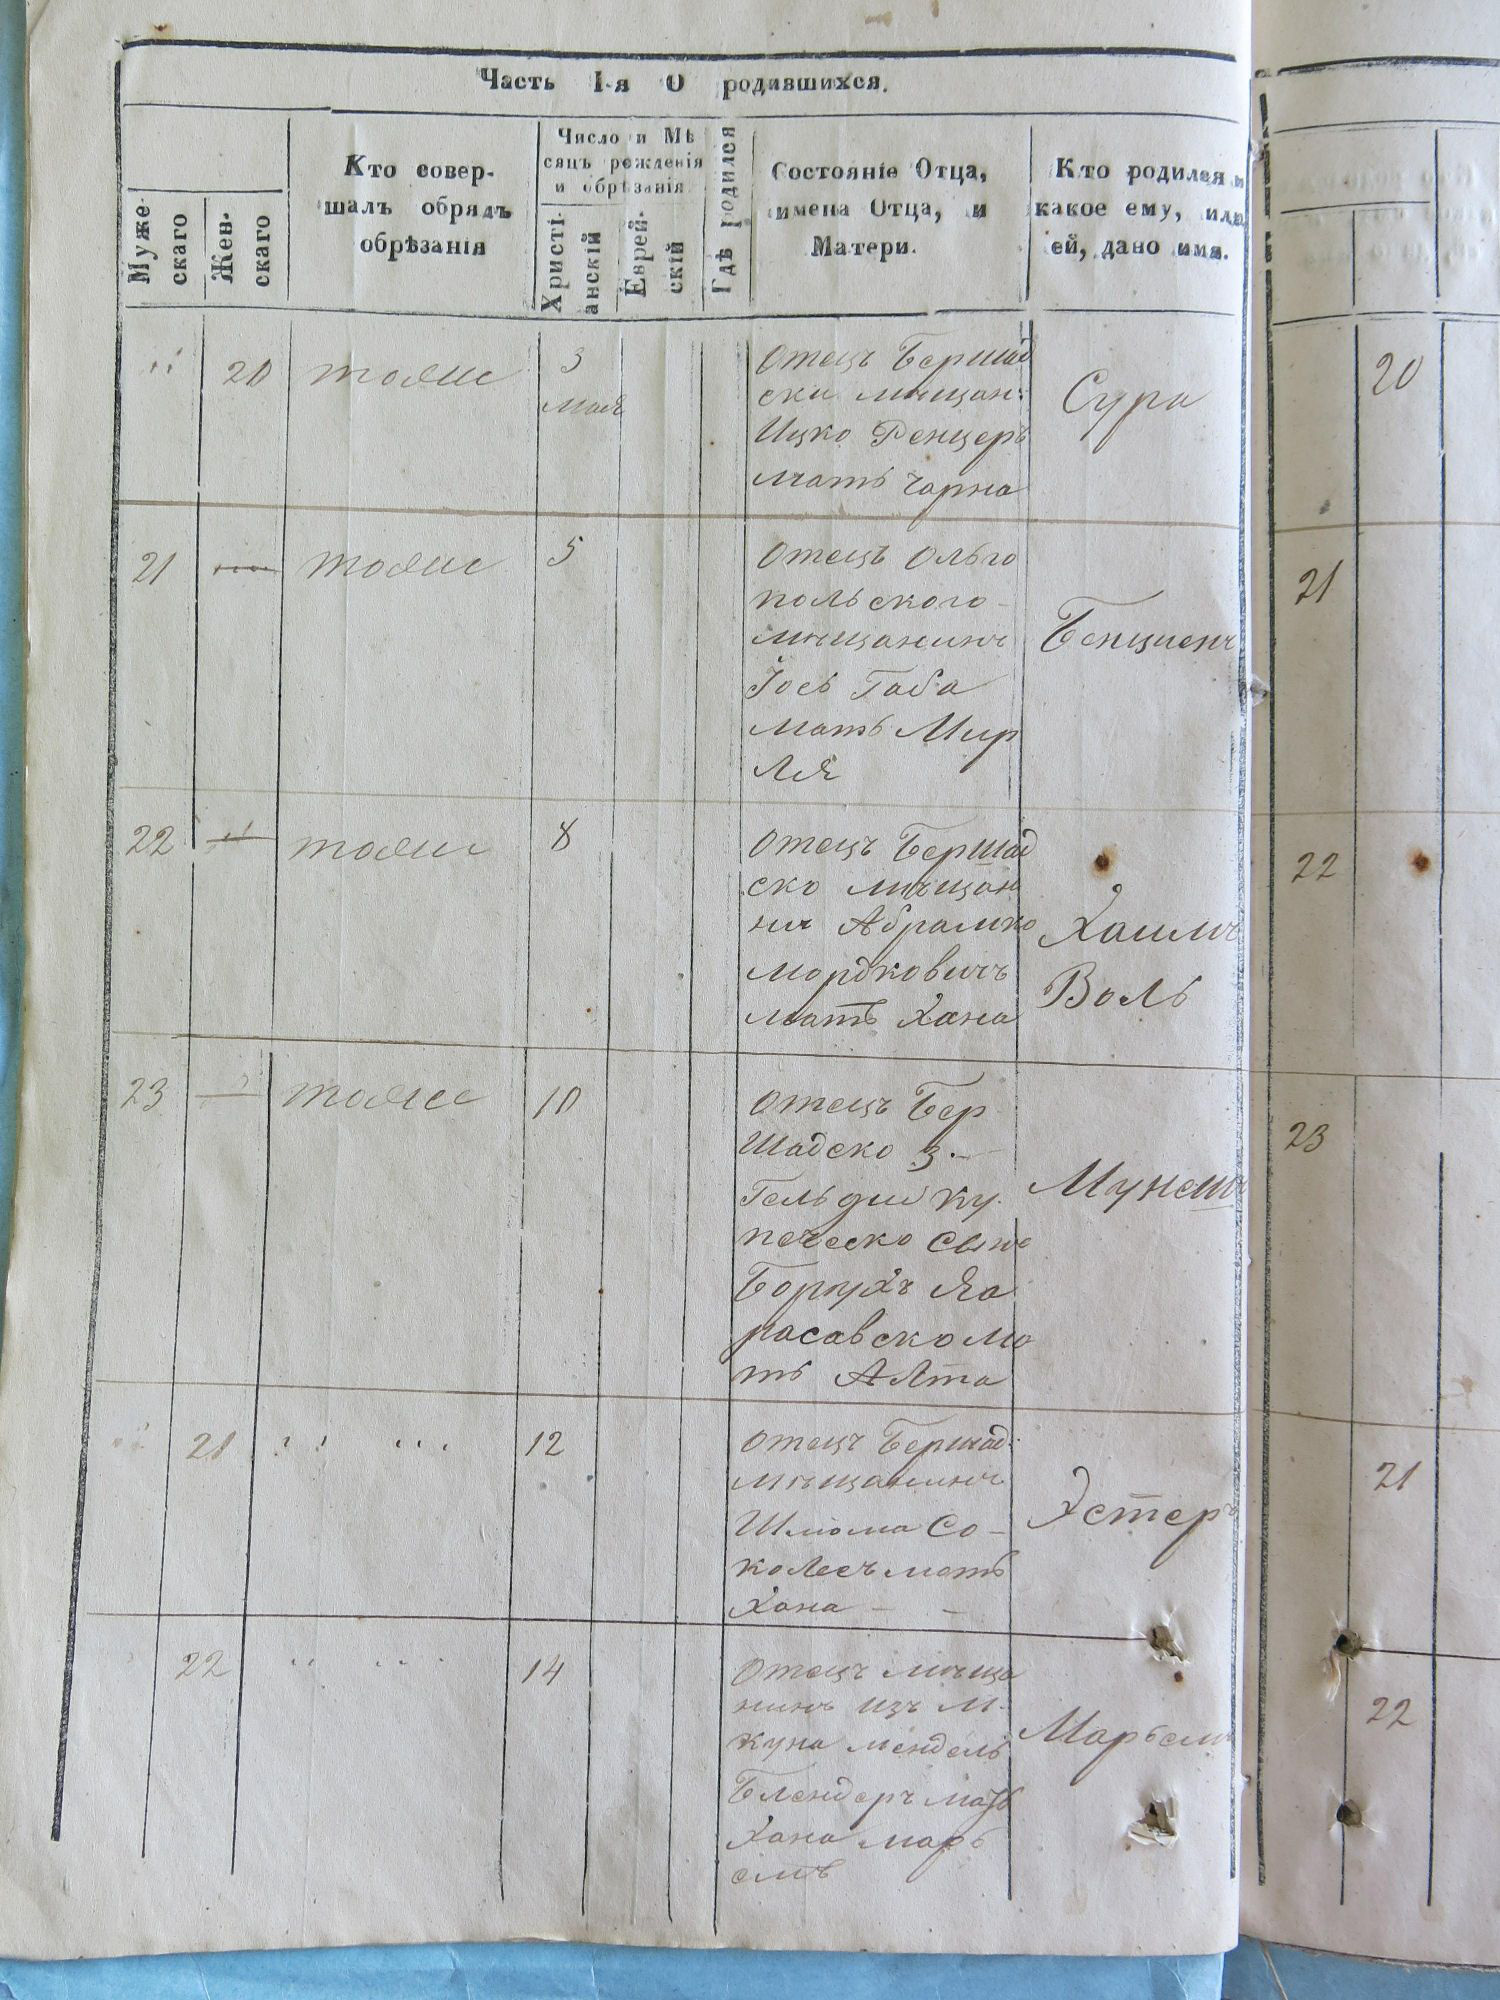 Часть I-я О родившихся.
Муже
скаго
Жен-
скаго
Кто совер-
шалъ обрядъ
обрѣзанія
Число и Мѣ
сяцъ рожденія
и обрѣзанія
Христі
анскій
Еврей-
скій
Гдѣ родился
Состояніе Отца,
имена Отца, и
Матери.
Кто родился и
какое ему, или
ей, дано имя.
20
тояис
3
мая
Отецъ Бершад
ски мѣщан:
Ицко Ренцеръ
мать Чарна
Сура
20
21
тояис
5
Отецъ Ольго
польского
мѣщанинъ
Іось Габа
мать Мир
ля
Бенциенъ
21
22
8
Отецъ Бершад
ско мѣщан
нъ Абрамко
Мордковичъ
мать Хана
Хаимъ
Воль
22
23
10
Отецъ Бер
шадско 3.
Гельдии ку
ческо сынъ
Борухъ
мо
ть Алта
23
21
12
Отецъ Бершад:
мѣщанинъ
Шлома Со-
колесъ мать
Хана
Эстеръ
21
22
14
Отецъ мѣща
нинъ изъ м.
Куна Мендель
Блендеръ мать
Хана Марь
емъ
Марьемъ
22